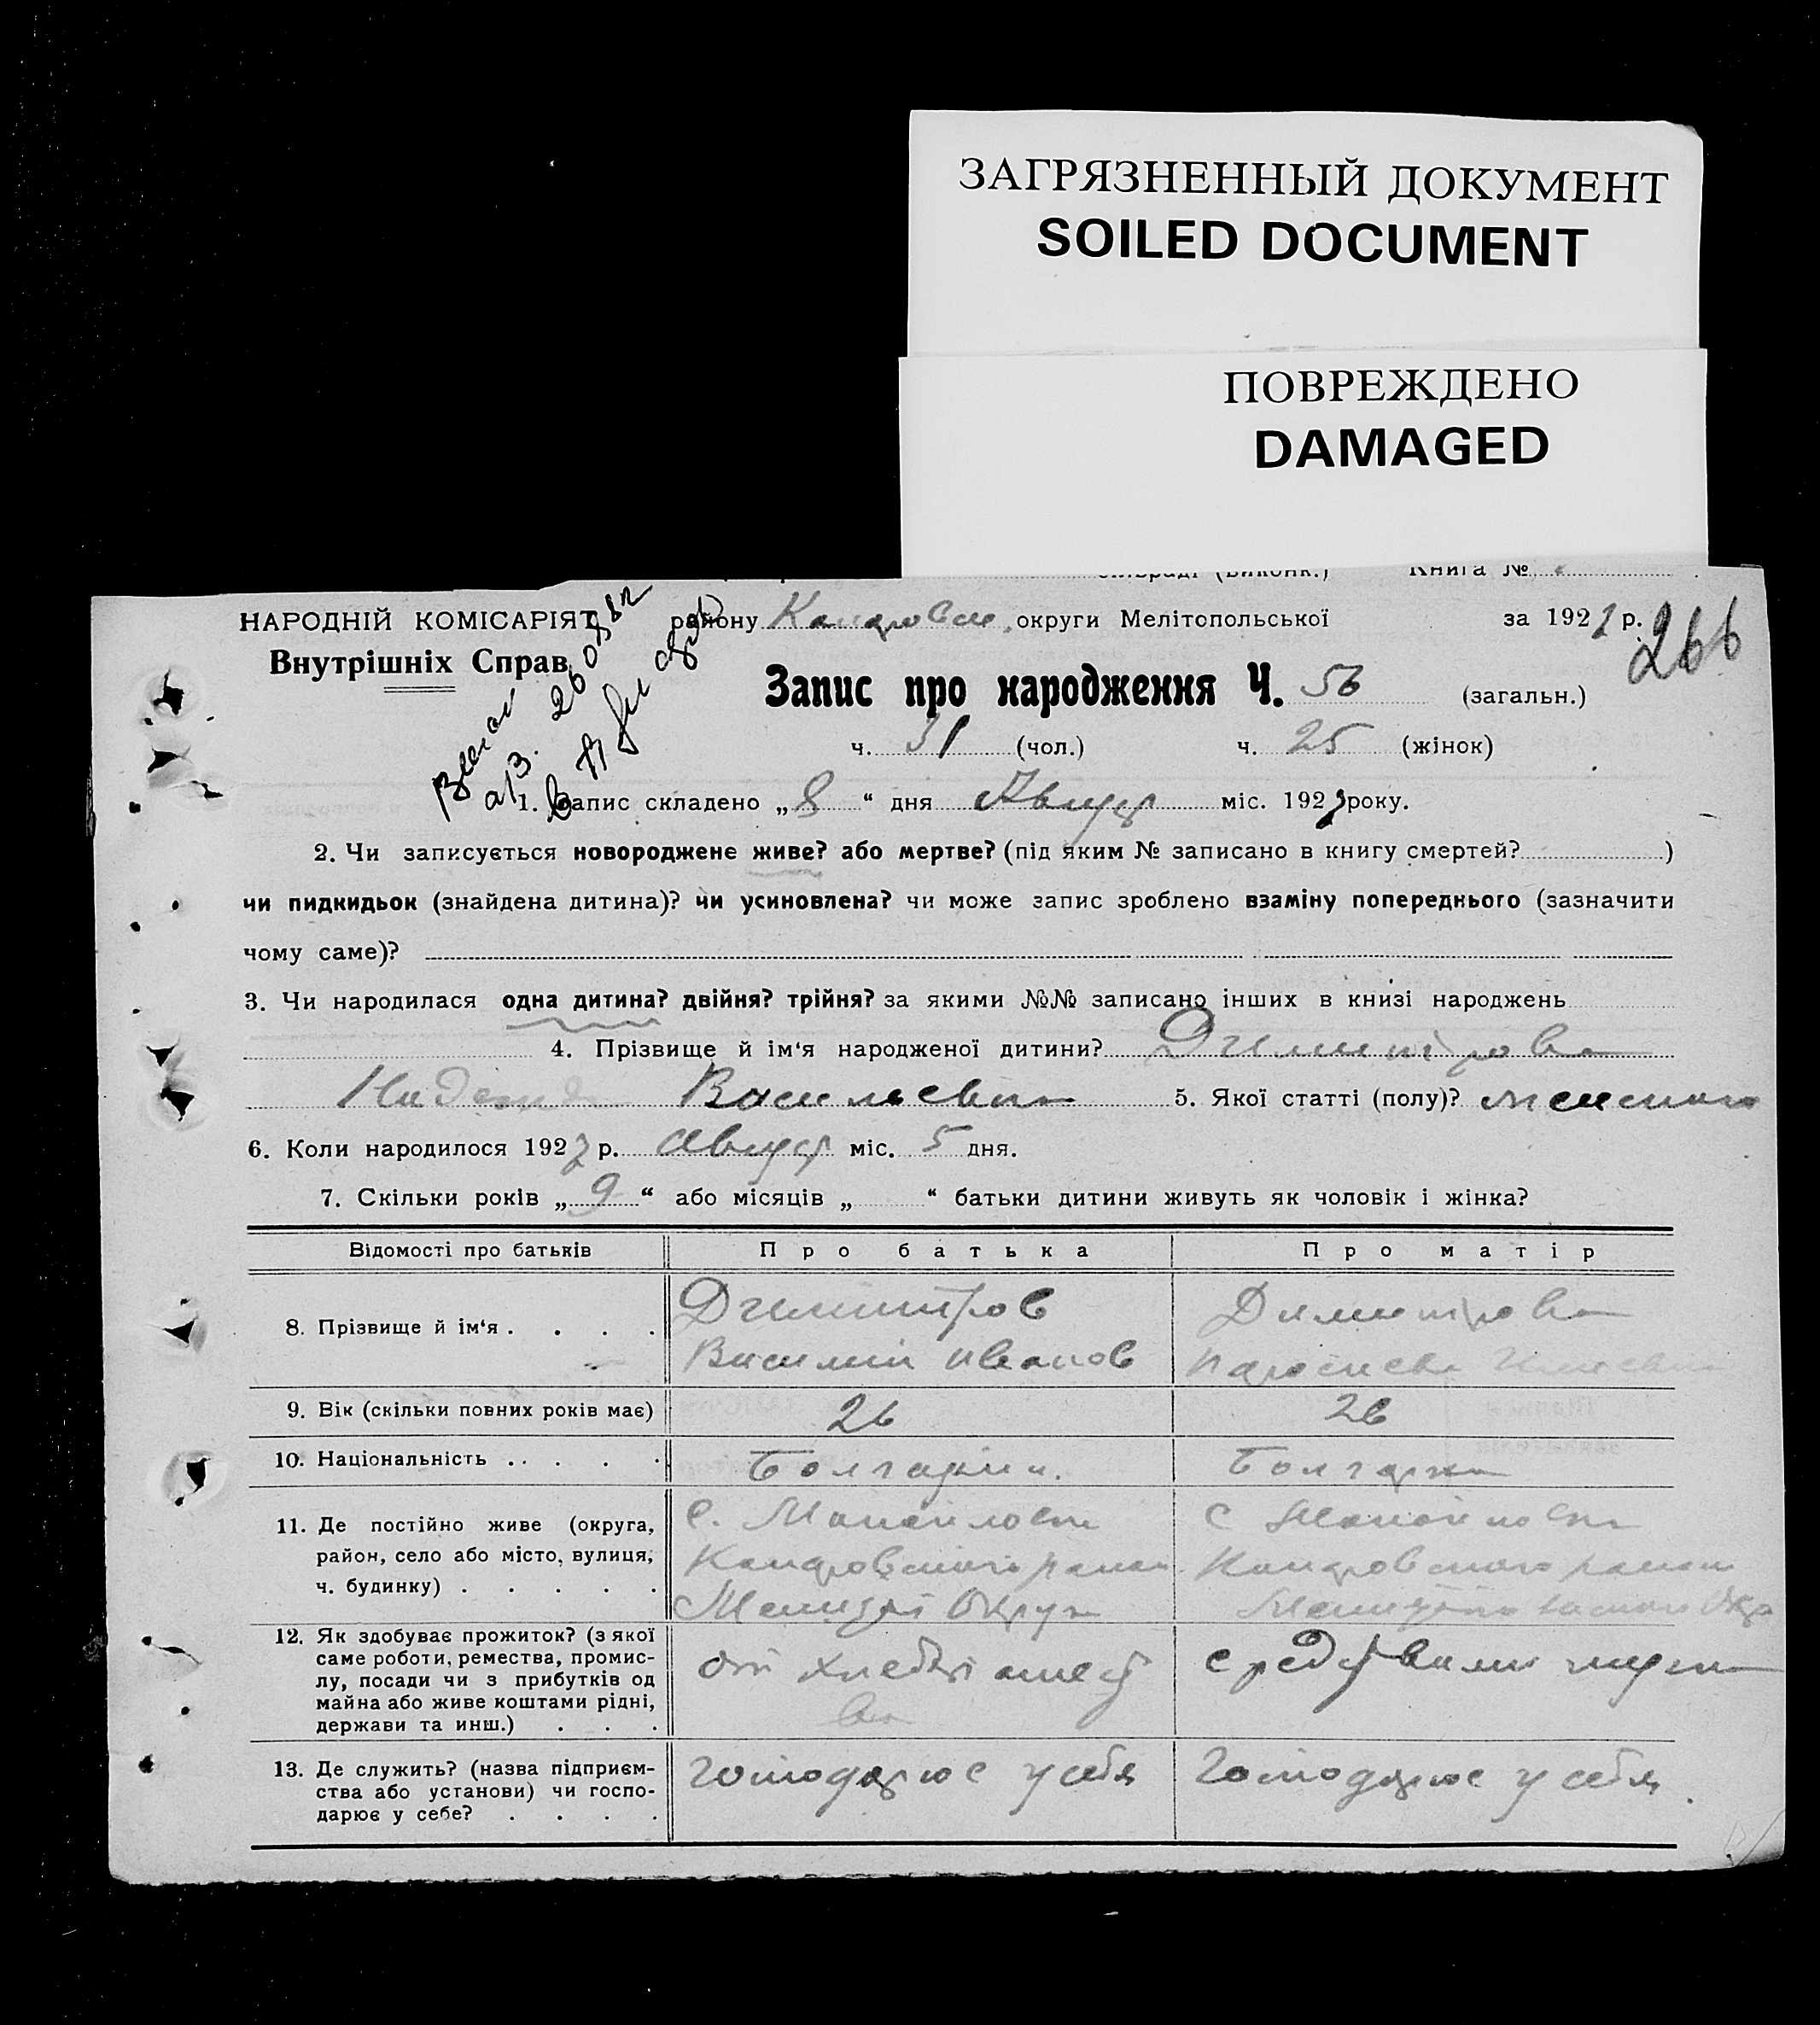 ЗАГРЯЗНЕННЫЙ ДОКУМЕНТ
SOILED DOCUMENT
ПОВРЕЖДЕНО
DAMAGED
Книга №
НАРОДНІЙ КОМІСАРІЯТ району округи Мелітопольської за 192 р. 266
Внутрішніх Справ
Запис про народження Ч. 56 (загальн.)
ч. 31 (чол.) ч. 25 (жінок)
1. Запис складено „ 8 “ дня Август міс. 192 року.
2. Чи записується новороджене живе? або мертве? (під яким № записано в книгу смертей? )
чи пидкидьок (знайдена дитина)? чи усиновлена? чи може запис зроблено взаміну попереднього (зазначити
чому саме)?
3. Чи народилася одна дитина? двійня? трійня? за якими №№ записано інших в книзі народжень
4. Прізвище й ім‘я народженої дитини? Димитрова
Надежда Васильевна 5. Якої статті (полу)? женского
6. Коли народилося 192 р. Август міс. 5 дня.
7. Скільки років „ 9 “ або місяців „ “ батьки дитини живуть як чоловік і жінка?
Відомості про батьків Про батька Про матір
8. Прізвище й ім‘я Димитров Димитрова
Василий Иванов
9. Вік (скільки повних років має) 26 26
10. Національність Болгарин. Болгарка
11. Де постійно живе (округа, с. Манойловка с Манойловка
район, село або місто, вулиця,
ч. будинку) Округа
12. Як здобуває прожиток? (з якої
саме роботи, ремества, промис-
лу, посади чи з прибутків од от хлебопашест средствами мужа
майна або живе коштами рідні, ва
держави та инш.)
13. Де служить? (назва підприєм- господарює у себя господарює у себя
ства або установи) чи госпо-
дарює у себе?